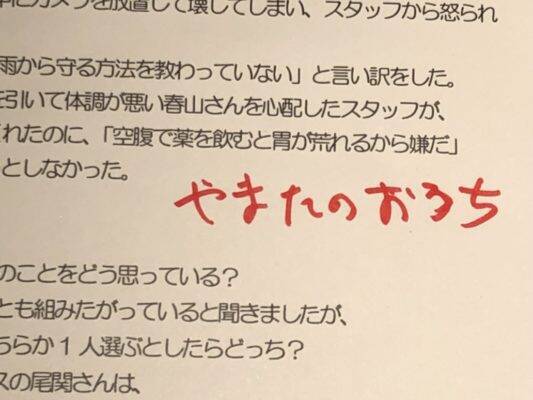 にカメラを放置して壊してしまい、スタッフから怒られ
雨から守る方法を教わっていない」と言い訳をした。
を引いて体調が悪い春山さんを心配したスタッフが、
れたのに、「空腹で薬を飲むと胃が荒れるから嫌だ」
としなかった。
やまたのおろち
のことをどう思っている?
とも組みたがっていると聞きましたが、
ちらか1人選ぶとしたらどっち?
スの尾関さんは、